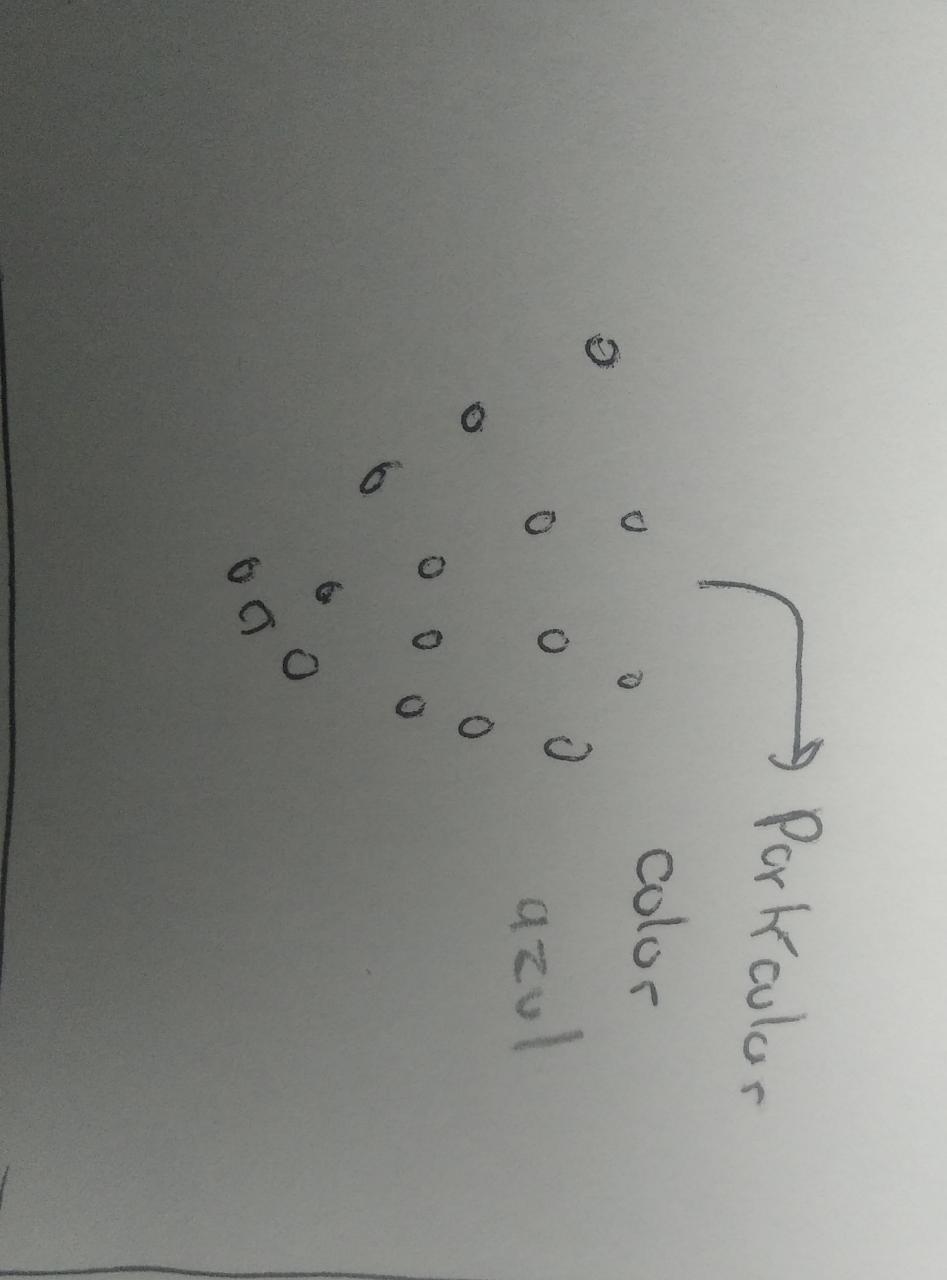 Particular
color
azul